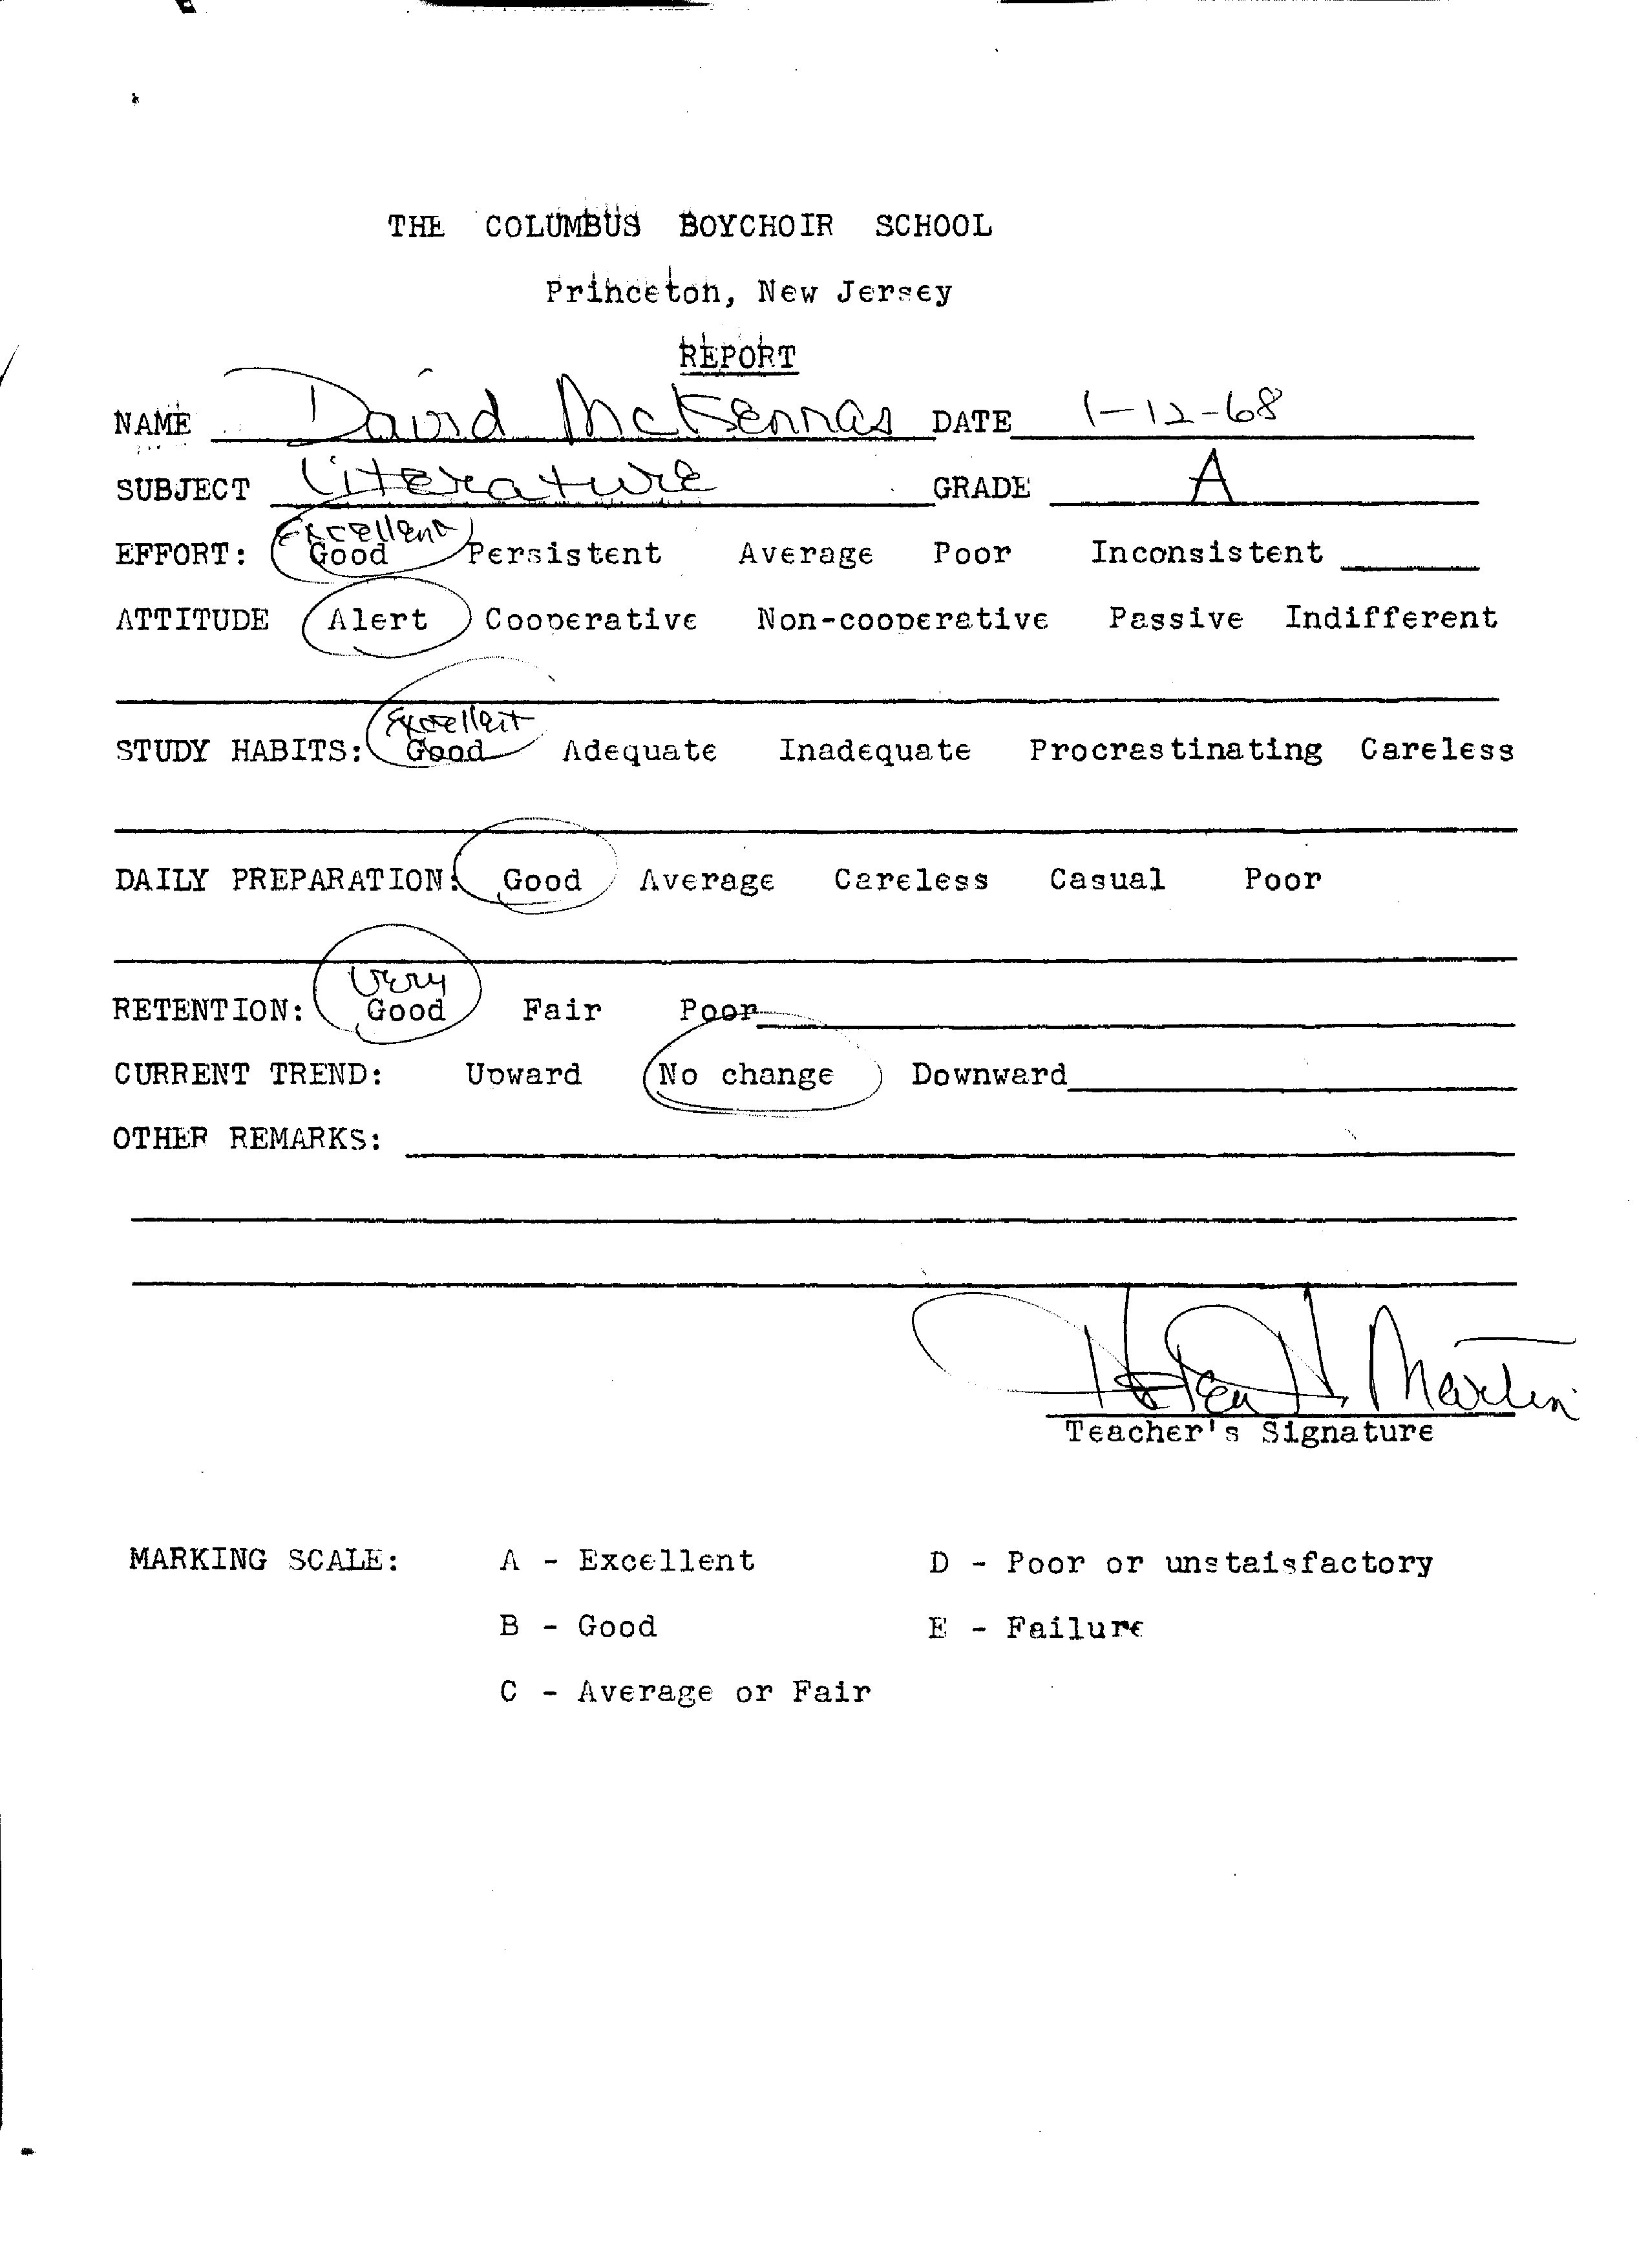 THE COLUMBUS BOYCHOIR SCHOOL
Princeton, New Jersey
REPORT
NAME David McKennas DATE 1-12-68
SUBJECT Literature GRADE A
Excellent
EFFORT: Good Persistent Average Poor Inconsistent
ATTITUDE Alert Cooperative Non-cooperative Passive Indifferent
Excellent
STUDY HABITS: Good Adequate Inadequate Procrastinating Careless
DAILY PREPARATION: Good Average Careless Casual Poor
Very
RETENTION: Good Fair Poor
CURRENT TREND: Upward No change Downward
OTHER REMARKS:
Helen H. Martin
Teacher's Signature
MARKING SCALE: A - Excellent D - Poor or unstaisfactory
B - Good E - Failure
C - Average or Fair